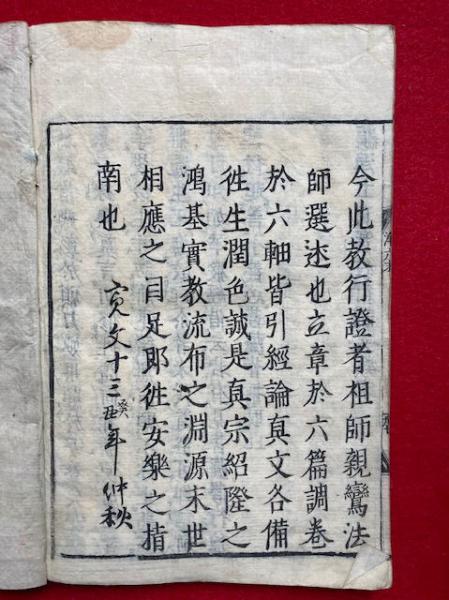 今此教行證者祖師親鸞法
師選述也立章於六篇調卷
於六軸皆引經論真文各備
徃生潤色誠是真宗紹隆之
鴻基實教流布之淵源末世
相應之目足即徃安樂之指
南也
寛文十三癸丑年仲秋